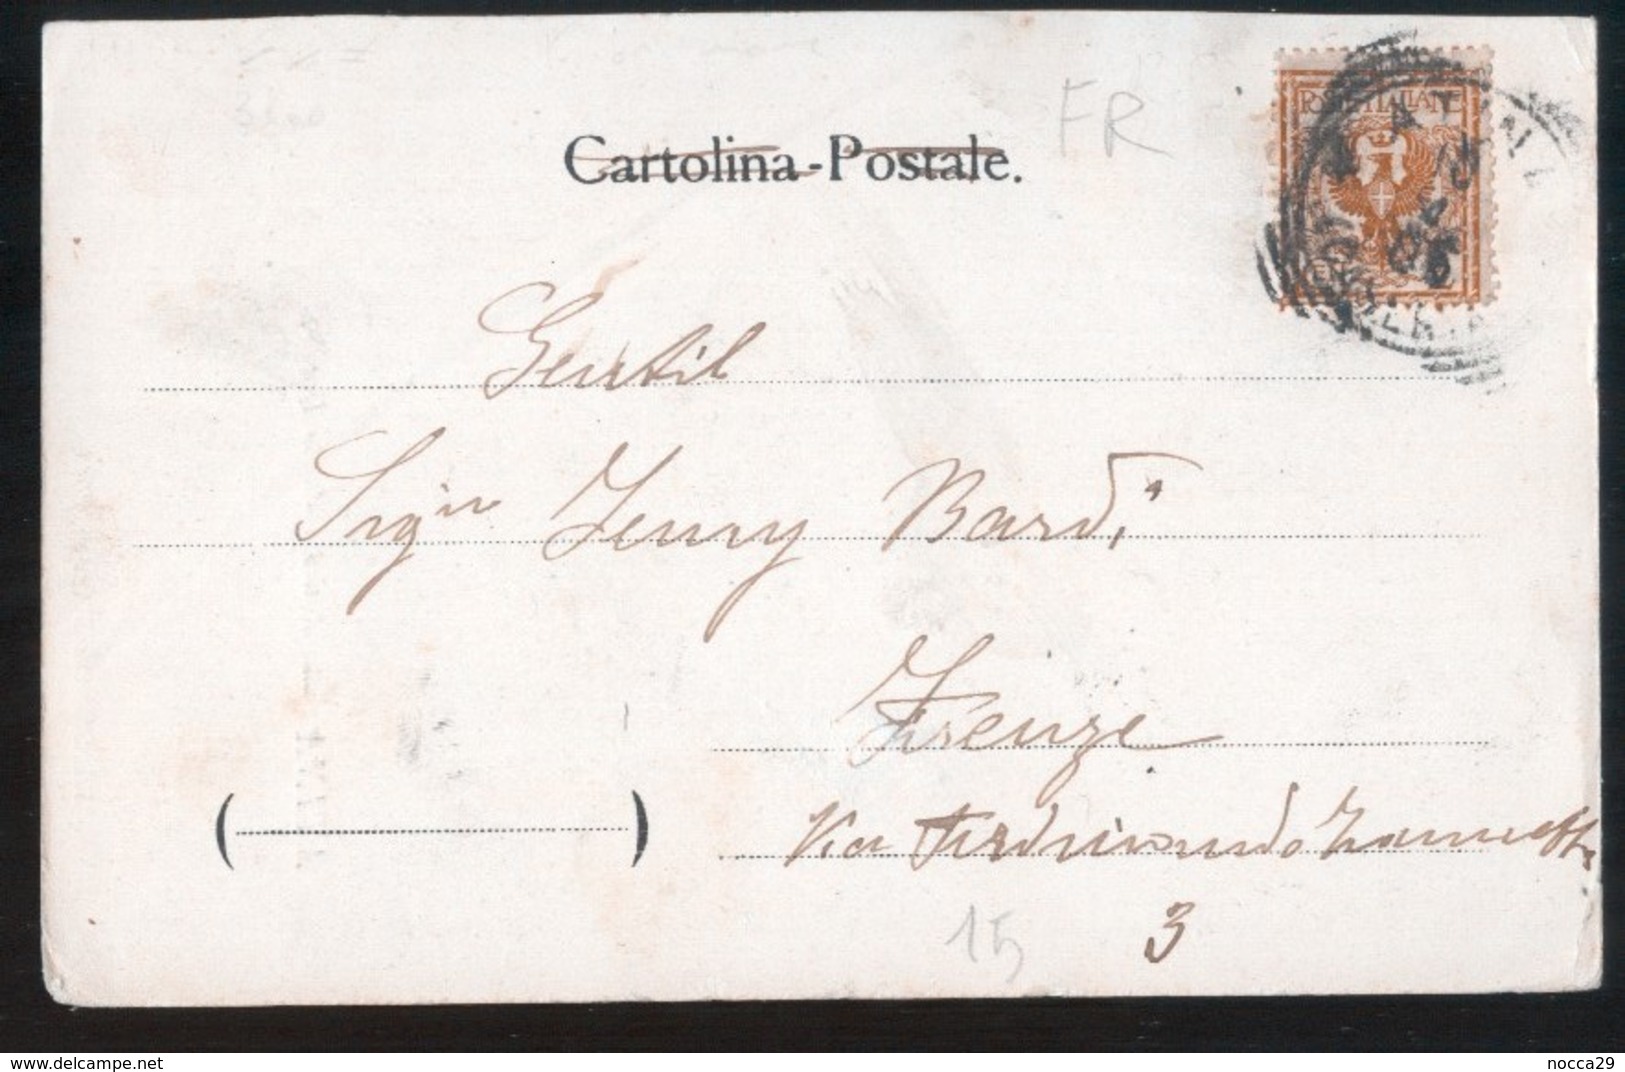 FR
Cartolina-Postale.
POSTE ITALIANE
10
4
05
Gentil
Sigra Jenny Bardi
Firenze
Via Ferdinando Zannetti
3
15
delcampe.net
nocca29